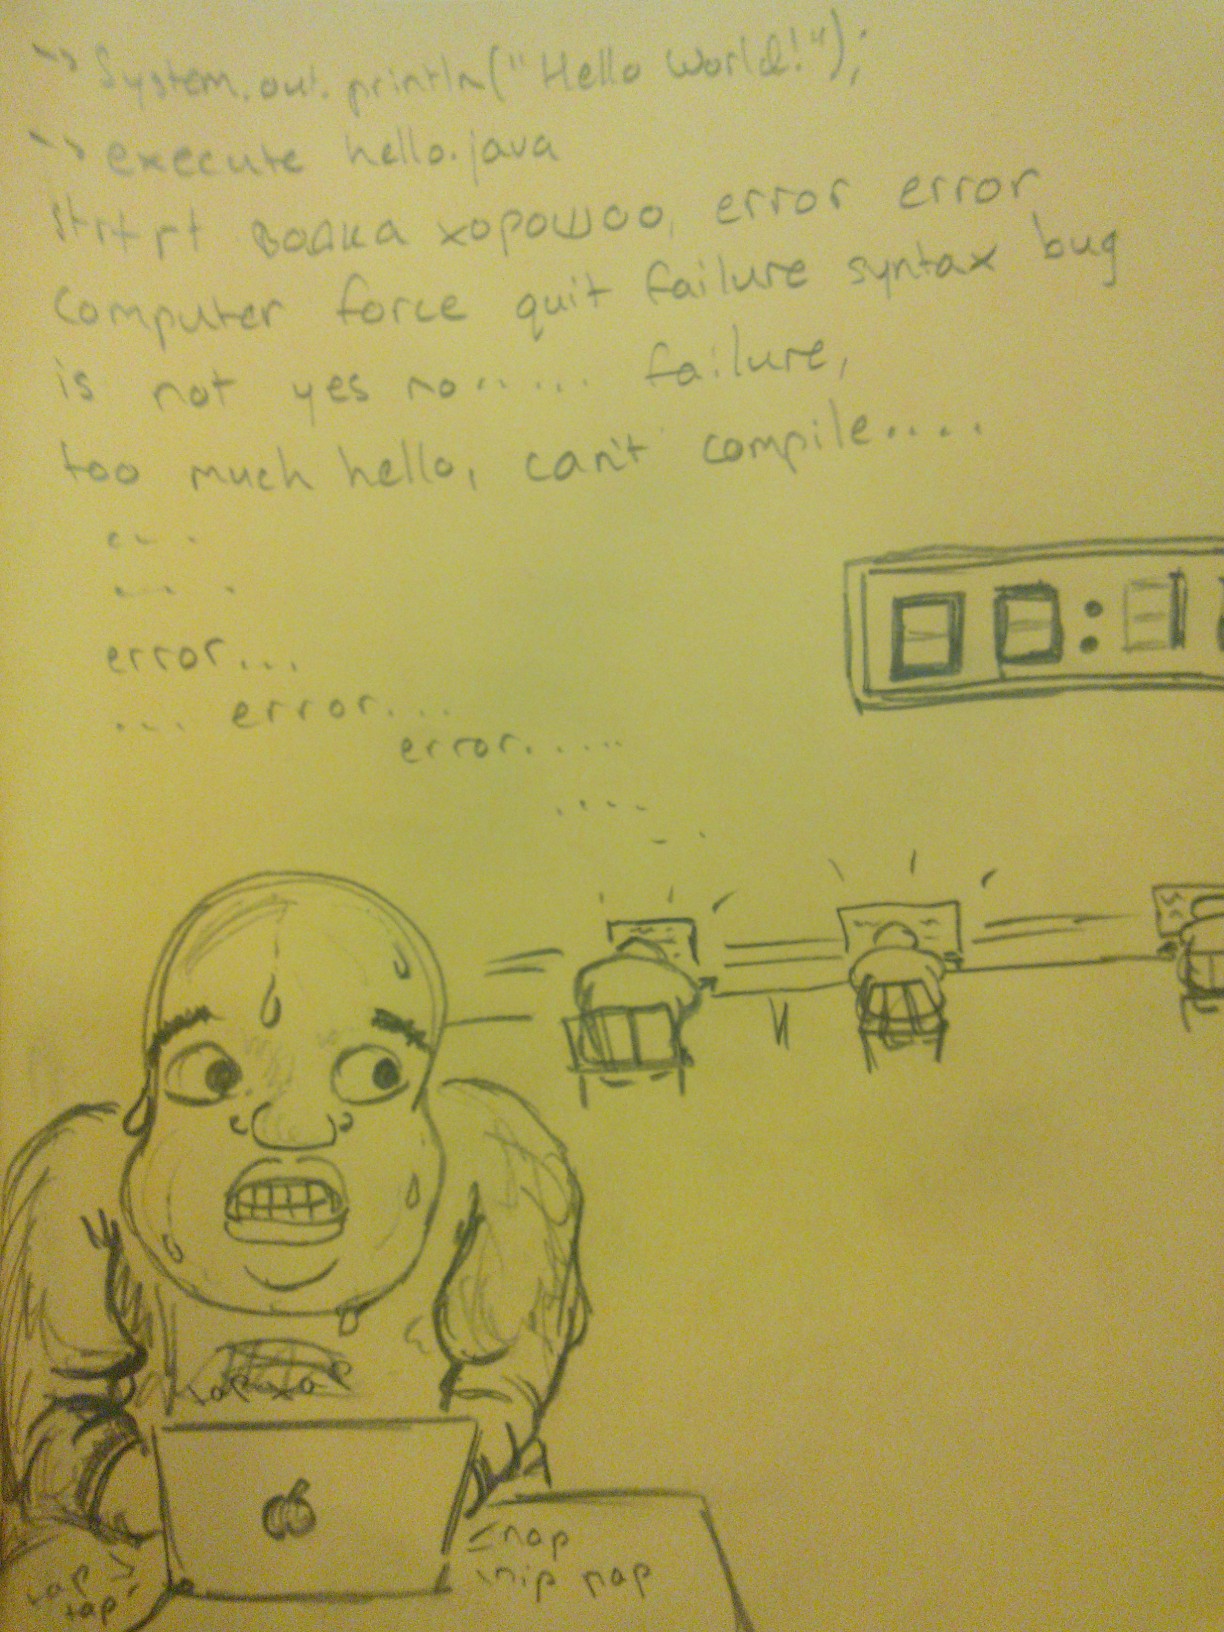 ~> System.out.println("Hello World!");
~> execute hello.java
strtrt водка хорошоо, error error
computer force quit failure syntax bug
is not yes no...... failure,
too much hello, can't compile....
....
....
error...
... error...
error.....
....
00:1
tap tap
snap
snip nap
tap
tap